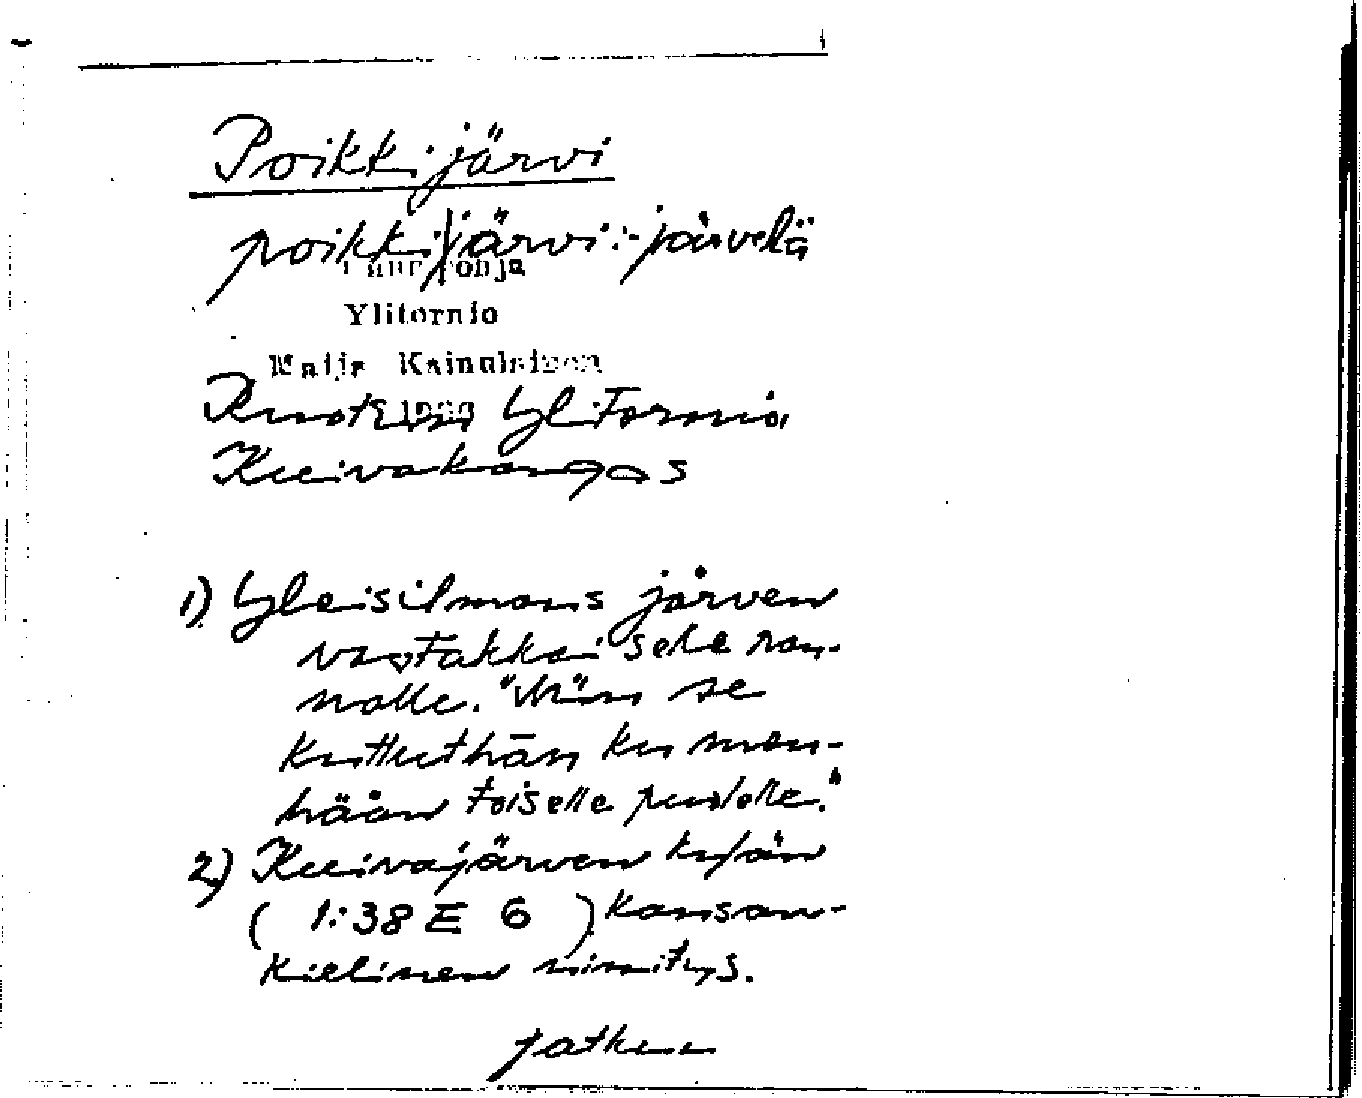 Poikkijärvi
poikki|järvi:-järvelä
Ylitornio
Maija Kainulainen
Ruotsin Ylitornio,
Kuivakangas
1) Yleisilmaus järven
vastakkaiselle ran-
nalle. "Niin se
kuttuthan ku men-
hään toiselle puolelle."
2) Kuivajärven kylän
( 1:38 E 6 ) kansan-
kielinen nimitys.
jatkuu